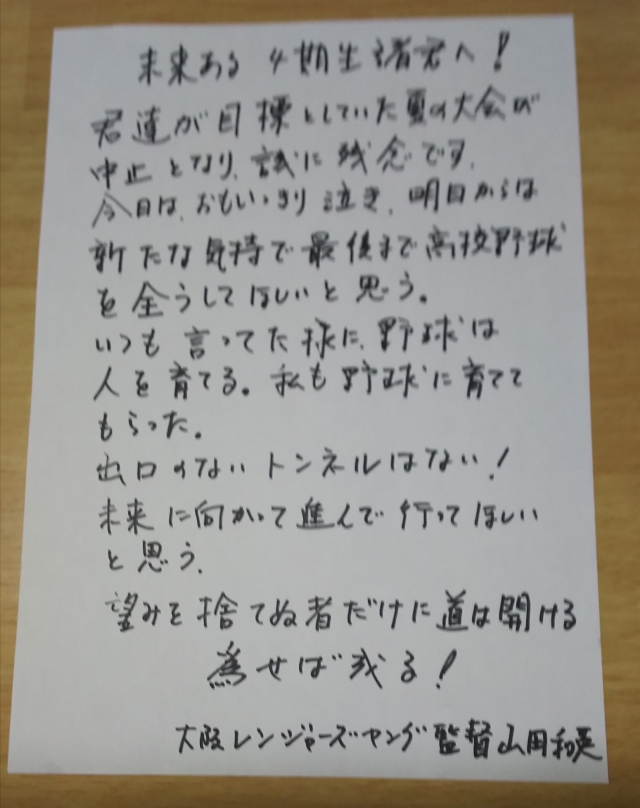 未来ある4期生諸君へ!
君達が目標としていた夏の大会が
中止となり、誠に残念です、
今日は、おもいっきり泣き、明日からは
新たな気持で最後まで高校野球
を全うしてほしいと思う。
いつも言ってた様に、野球は
人を育てる。私も野球に育てて
もらった。
出口のないトンネルはない!
未来に向かって進んで行ってほしい
と思う、
望みを捨てぬ者だけに道は開ける
為せば成る!
大阪レンジャーズヤング監督山田和英